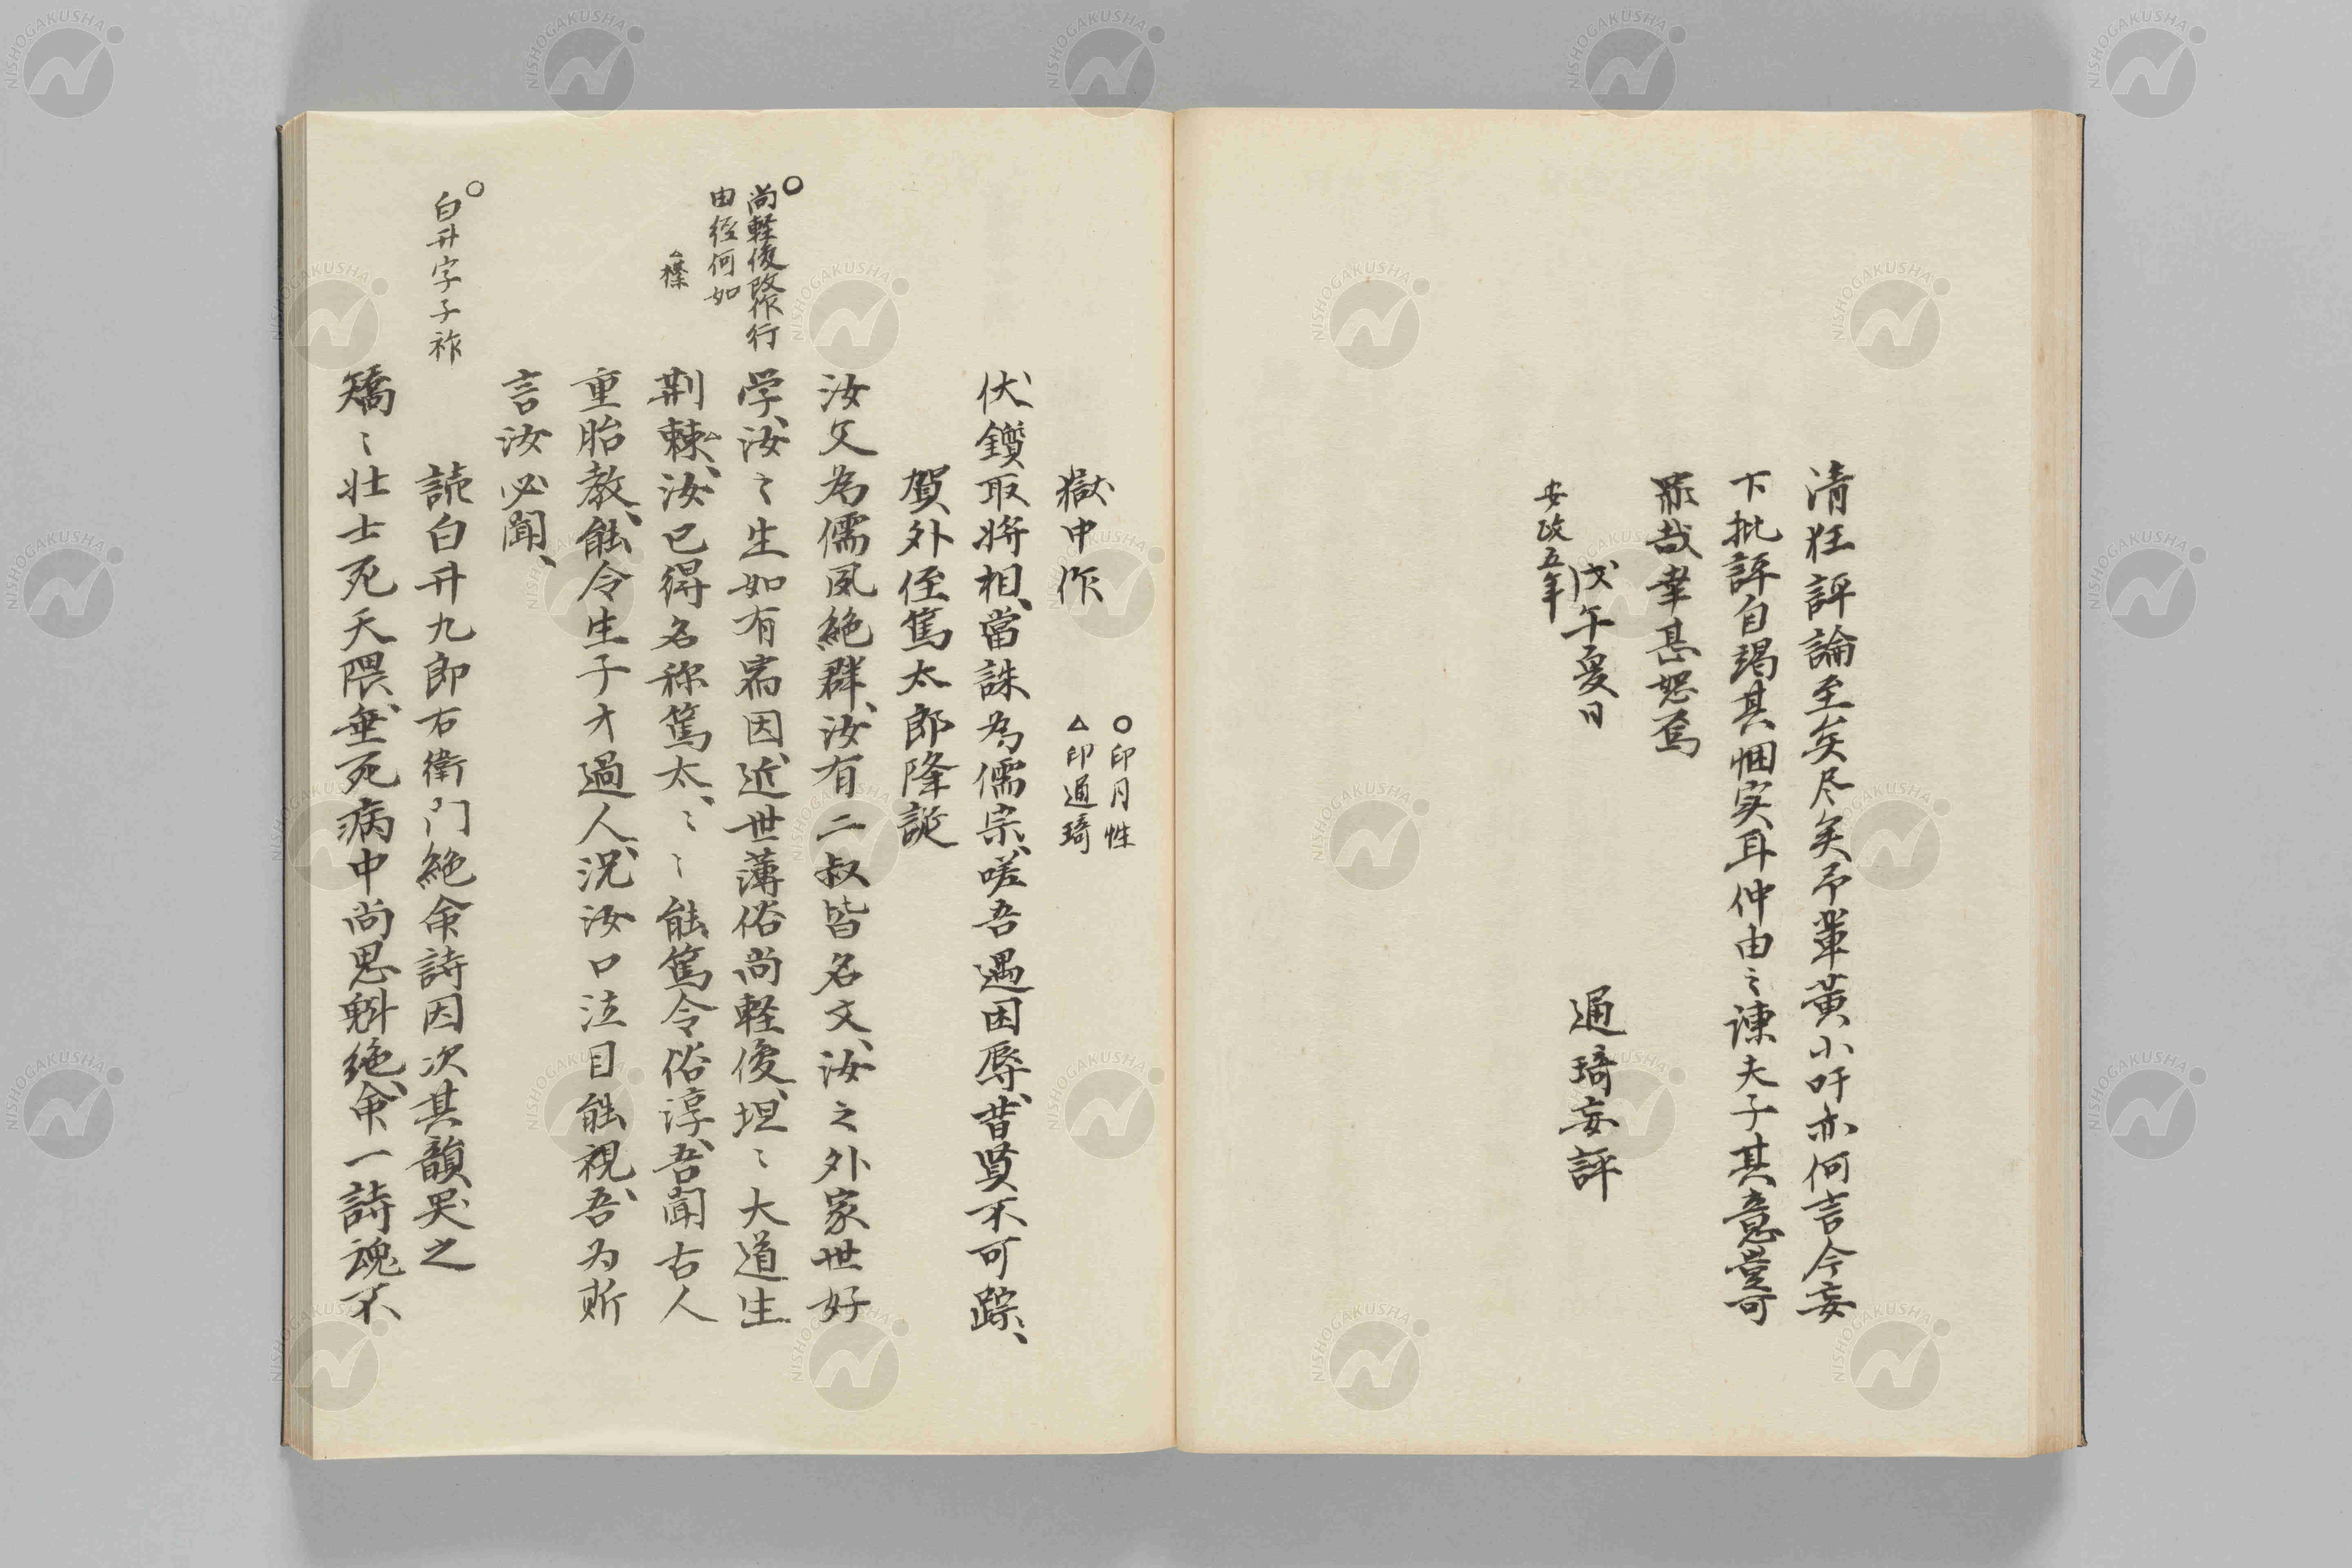 清狂評論至矣尽矣予輩黃小吁亦何言今妄
下批評自竭其悃実耳仲由之諌夫子其意豈可
罪哉幸甚恕焉
戊午夏日
安政五年
通琦妄評
獄中作
○印月性
△印通琦
伏鑕取将相、當誅為儒宗、嗟吾遇困辱、昔賢不可踪、
賀外侄篤太郎降誕
汝父為儒風絶群、汝有二叔皆名文、汝之外家世好
○尚軽俊改作行
由径何如
学、汝〻生如有宿因、近世薄俗尚軽俊、坦〻大道生
△榛
荆棘、汝已得名称篤太、〻〻能篤令俗淳、吾聞古人
重胎教、能令生子才過人、況汝口泣目能視、吾為斯
言汝必聞、
○白井字子祚
読白井九郎右衛門絶命詩因次其韻哭之
矯〻壮士死天隈、垂死病中尚思魁、絶命一詩魂不
NISHOGAKUSHA